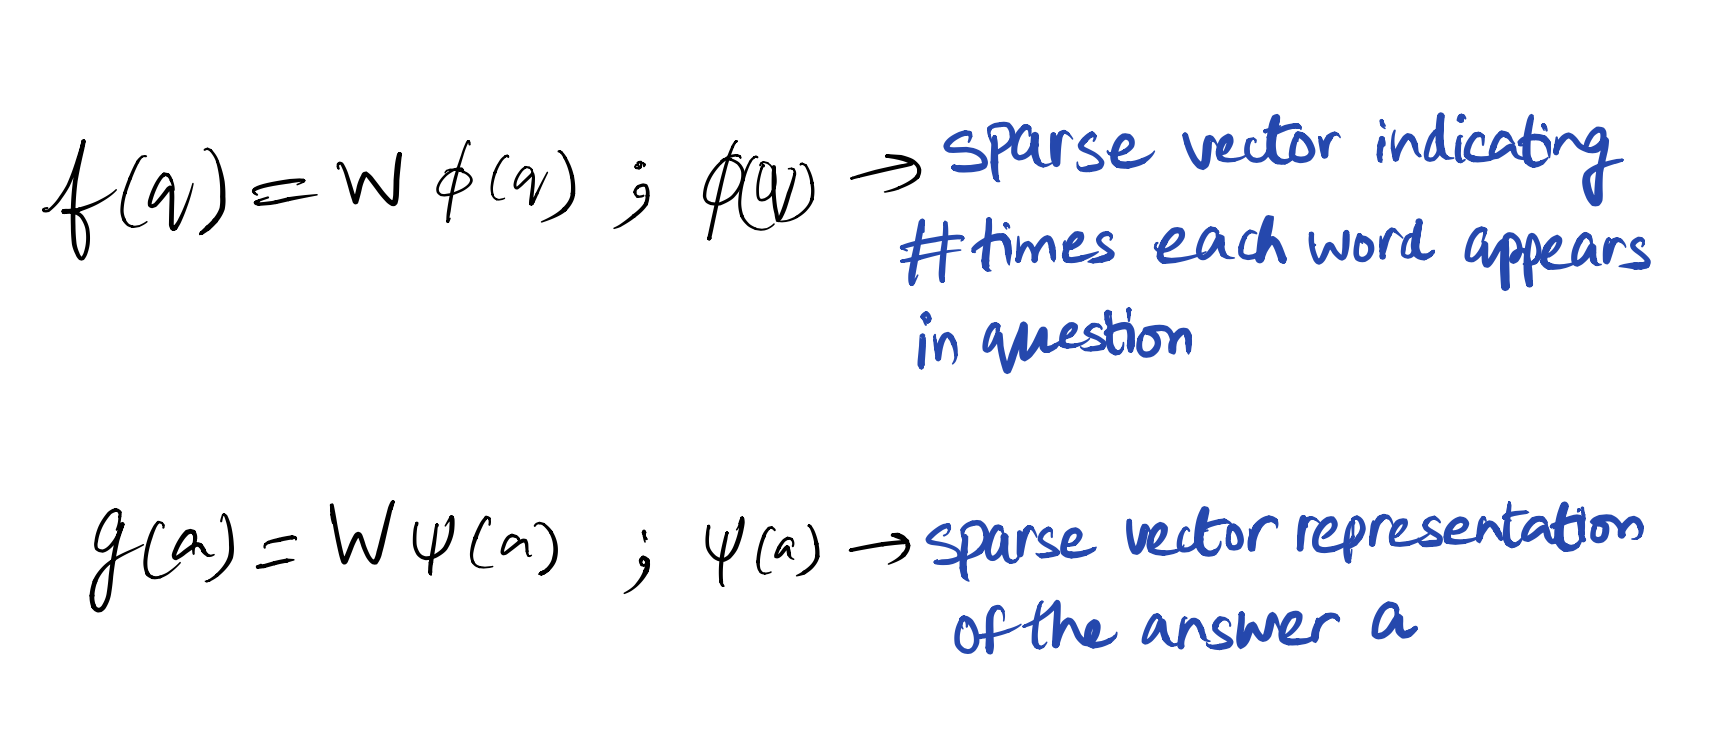 f(q) = W ϕ(q) ; ϕ(q) → sparse vector indicating
# times each word appears
in question
g(a) = W ψ(a) ; ψ(a) → sparse vector representation
of the answer a